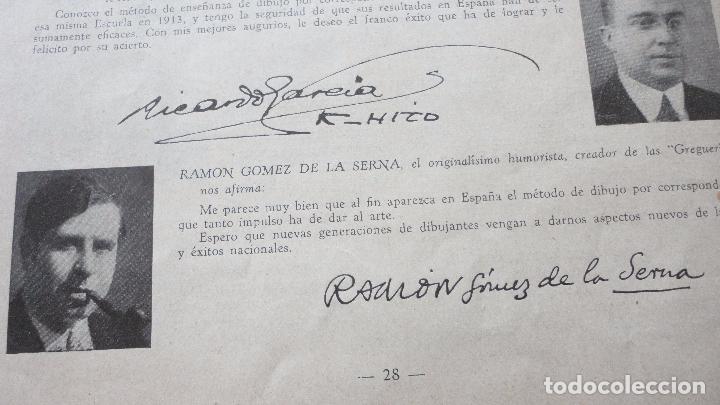 Conozco el método de enseñanza de dibujo por
esa misma Escuela en 1913, y tengo la seguridad de que sus resultados en España han de
sumamente eficaces. Con mis mejores augurios, le deseo el franco éxito que ha de lograr y le
felicito por su acierto.
Ricardo García
K-HITO
RAMON GOMEZ DE LA SERNA, el originalísimo humorista, creador de las "Greguer
nos afirma:
Me parece muy bien que al fin aparezca en España el método de dibujo por correspond
que tanto impulso ha de dar al arte.
Espero que nuevas generaciones de dibujantes vengan a darnos aspectos nuevos de
y éxitos nacionales.
RAMÓN Gómez de la Serna
— 28 —
todocoleccion.net